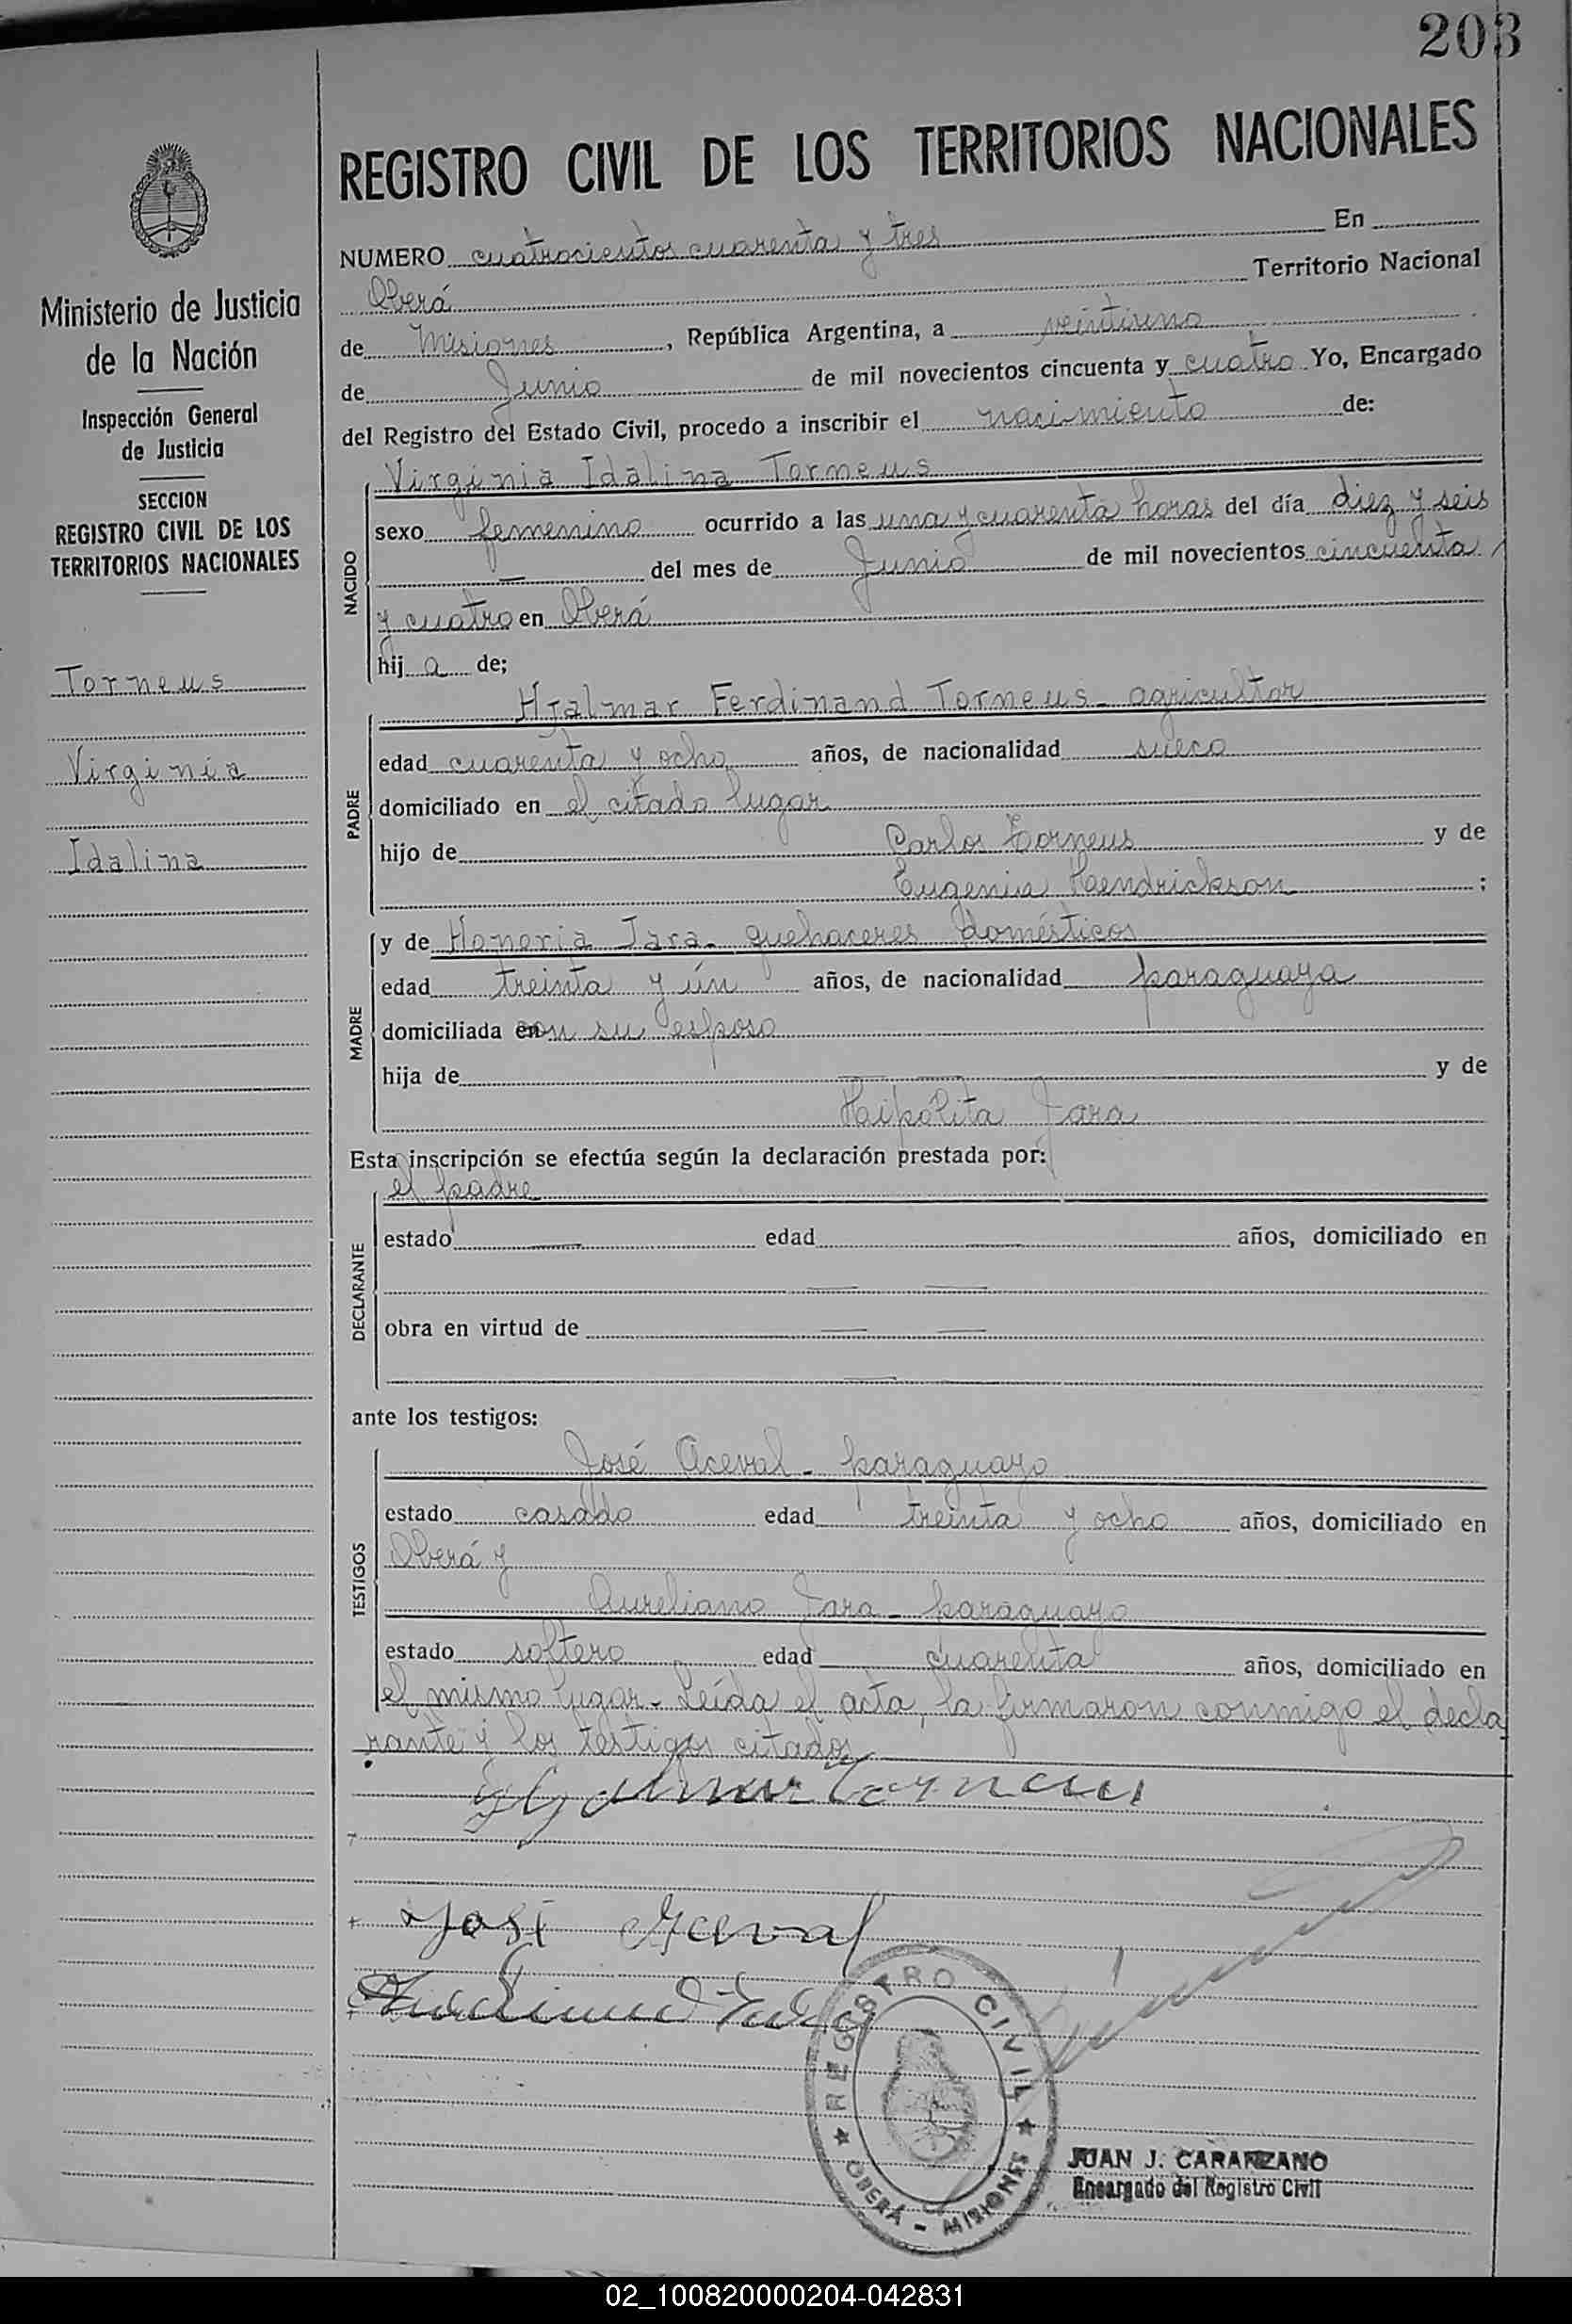 203
REGISTRO CIVIL DE LOS TERRITORIOS NACIONALES
Ministerio de Justicia
de la Nación
Inspección General
de Justicia
SECCION
REGISTRO CIVIL DE LOS
TERRITORIOS NACIONALES
Torneus
Virginia
Idalina
NUMERO cuatrocientos cuarenta y tres En
Oberá Territorio Nacional
de Misiones, República Argentina, a veintiuno
de Junio de mil novecientos cincuenta y cuatro Yo, Encargado
del Registro del Estado Civil, procedo a inscribir el nacimiento de:
NACIDO
Virginia Idalina Torneus
sexo femenino ocurrido a las una y cuarenta horas del día diez y seis
— del mes de Junio de mil novecientos cincuenta
y cuatro en Oberá
hij a de;
PADRE
Hjalmar Ferdinand Torneus - agricultor
edad cuarenta y ocho años, de nacionalidad sueco
domiciliado en el citado lugar
hijo de Carlos Torneus y de
Eugenia Haendrickson ;
MADRE
y de Honoria Jara - quehaceres domésticos
edad treinta y ún años, de nacionalidad paraguaya
domiciliada en con su esposo
hija de — — y de
Haipólita Jara
Esta inscripción se efectúa según la declaración prestada por:
DECLARANTE
el padre
estado — edad — años, domiciliado en
— —
obra en virtud de — —
—
ante los testigos:
TESTIGOS
José Aceval - paraguayo
estado casado edad treinta y ocho años, domiciliado en
Oberá y
Aureliano Jara - paraguayo
estado soltero edad cuarenta años, domiciliado en
el mismo lugar - Leída el acta, la firmaron conmigo el decla
rante y los testigos citados
Hjalmar Torneus
José Aceval
REGISTRO CIVIL
OBERÁ - MISIONES
JUAN J. CARANZANO
Encargado del Registro Civil
02_100820000204-042831